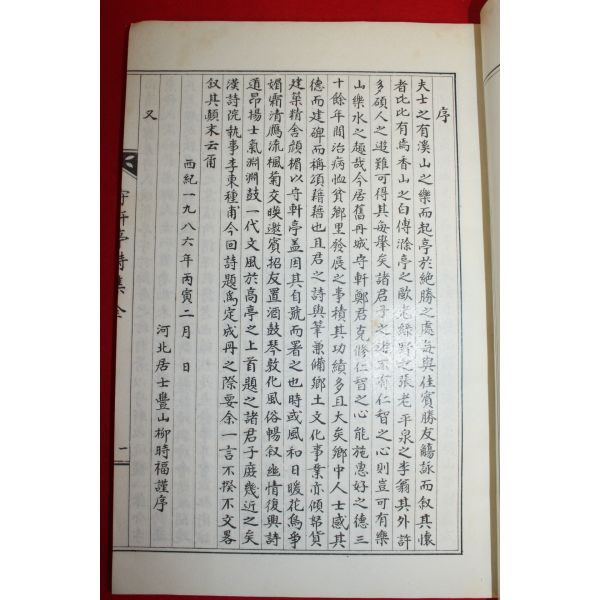 序
夫士之有溪山之樂而起亭於絶勝之處每與佳賓勝友觴詠而叙其懷
者比比有焉香山之白傅滁亭之歐老綠野之張老平泉之李翁其外許
多碩人之遊難可得其每擧矣諸君子之 有仁智之心則豈可有樂
山樂水之趣哉今居舊丹城守軒鄭君克修仁智之心能施惠好之德三
十餘年間治病恤貧鄕里發展之事積其功績多且大矣鄕中人士感其
德而建碑而稱頌藉藉也且君之詩與筆兼備鄕土文化事業亦傾帑貨
建築精舍顔楣以守軒亭盖因其自號而署之也時或風和日暖花鳥爭
媚霜清鴈流楓菊交暎邀賓招友置酒鼓琴敦化風俗暢叙幽情復興詩
道昂揚士氣淵淵鼓一代文風於高亭之上首題之諸君子庶幾近之矣
漢詩院執事李東種甫今回詩題爲定成丹之際要余一言不揆不文畧
叙其顚末云甭
西紀一九八六年丙寅二月 日
河北居士豊山柳時福謹序
又
守軒亭詩集全
一